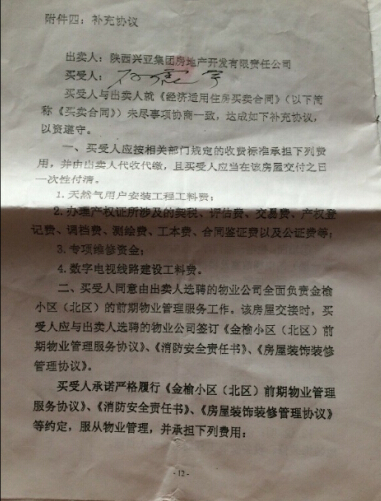 附件四：补充协议
出卖人：陕西兴亚集团房地产开发有限责任公司
买受人：
买受人与出卖人就《经济适用住房买卖合同》（以下简
称《买卖合同》）未尽事项协商一致，达成如下补充协议，
以资遵守。
一、买受人应按相关部门规定的收费标准承担下列费
用，并由出卖人代收代缴，且买受人应当在该房屋交付之日
一次性付清。
1.天然气用户安装工程工料费；
2.办理产权证所涉及的契税、评估费、交易费、产权登
记费、调档费、测绘费、工本费、合同鉴证费以及公证费等；
3.专项维修资金；
4.数字电视线路建设工料费。
二、买受人同意由出卖人选聘的物业公司全面负责金榆
小区（北区）的前期物业管理服务工作。该房屋交接时，买
受人应与出卖人选聘的物业公司签订《金榆小区（北区）前
期物业管理服务协议》、《消防安全责任书》、《房屋装饰装修
管理协议》。
买受人承诺严格履行《金榆小区（北区）前期物业管理
服务协议》、《消防安全责任书》、《房屋装饰装修管理协议》
等约定，服从物业管理，并承担下列费用：
-12-